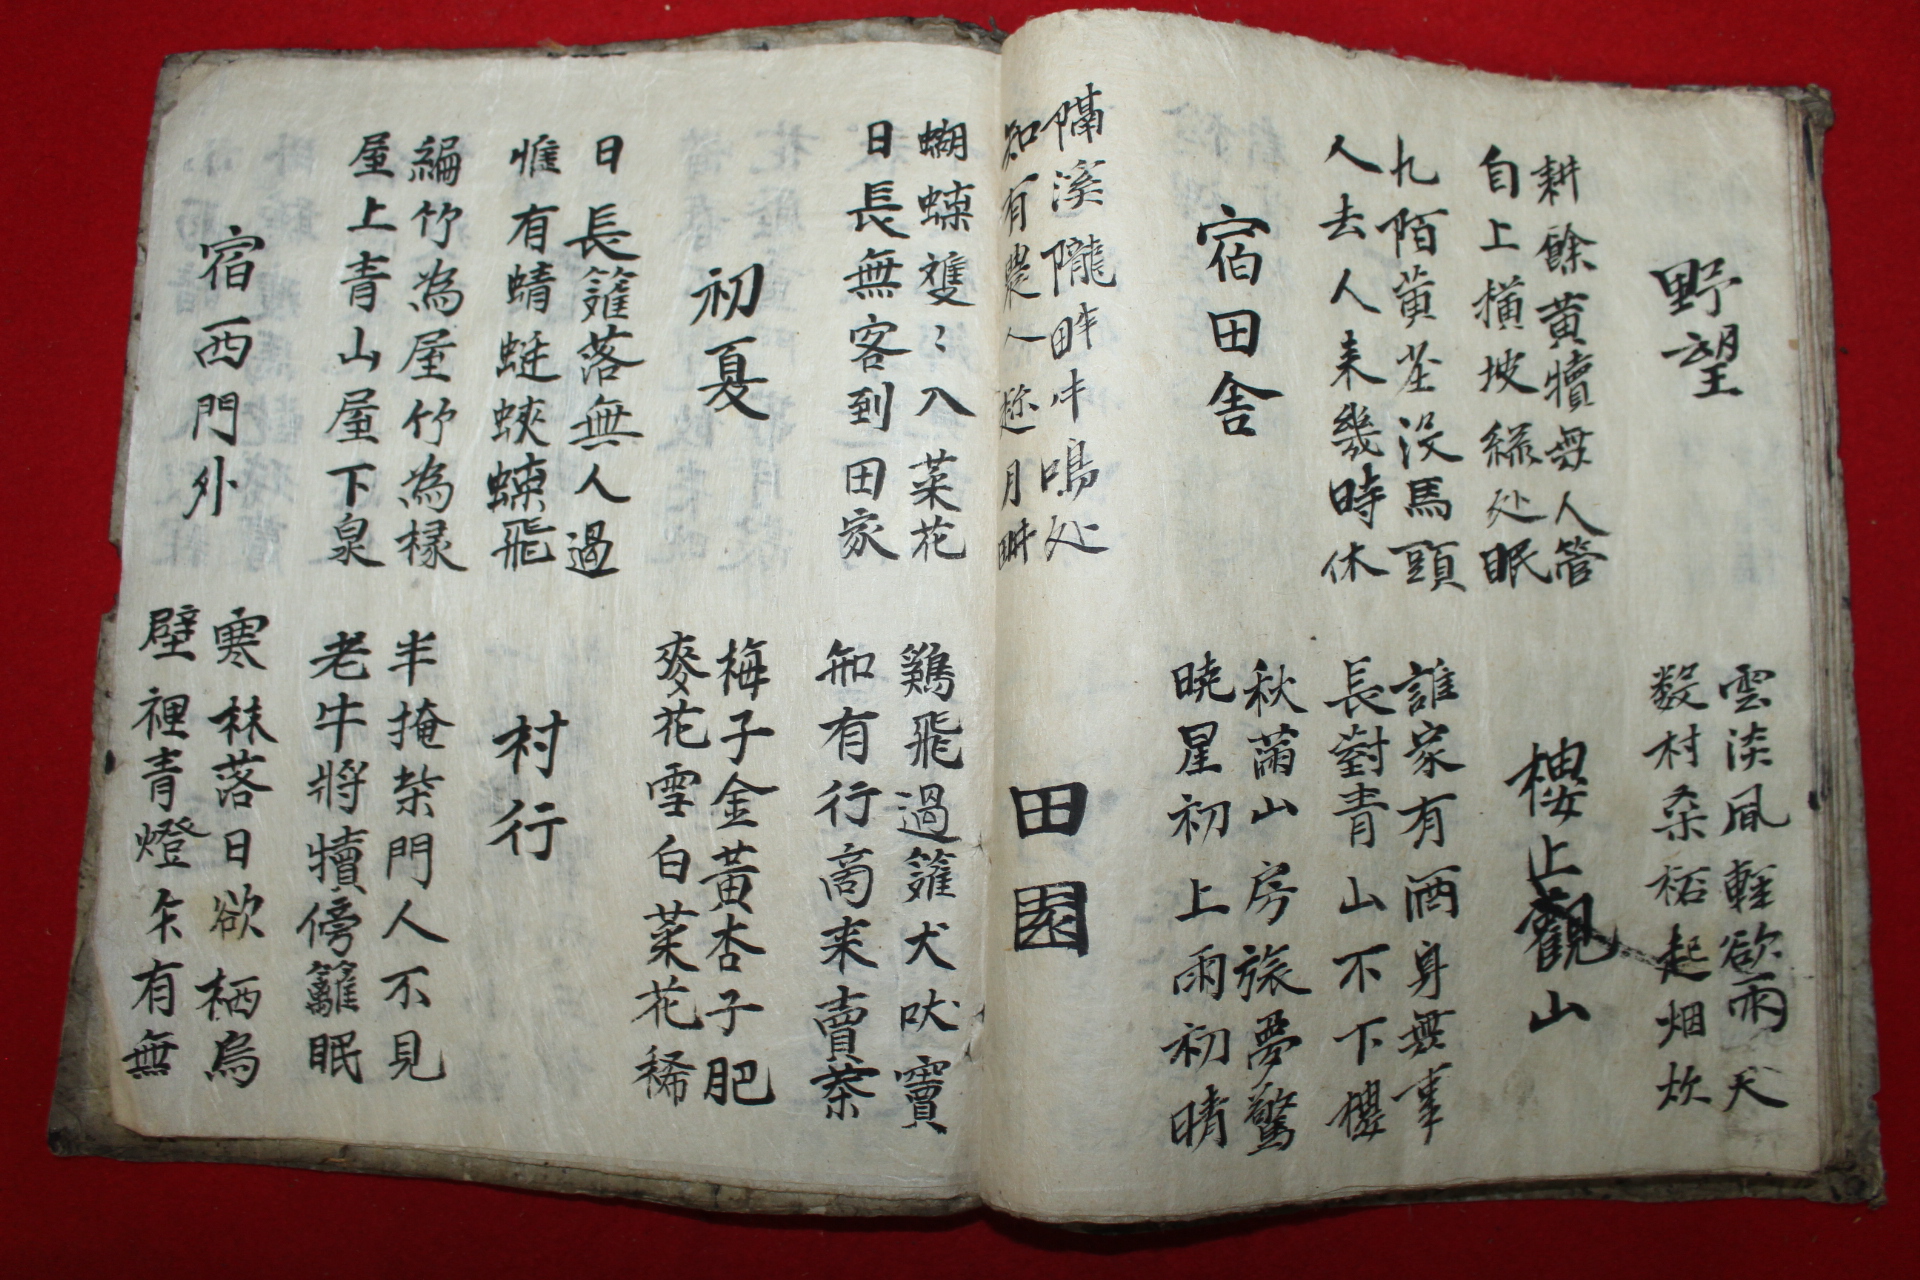 野望
雲淡風輕欲雨天
数村桑柘起烟炊
耕餘黃犢無人管
自上橫坡綠处眠
樓上觀山
九陌黃荃没馬頭
人去人來幾時休
誰家有酒身無事
長對青山不下樓
宿田舍
秋滿山房旅夢驚
曉星初上雨初晴
隔溪隴畔牛鳴处
知有農人趂月畊
田園
蝴蝶雙〻入菜花
日長無客到田家
鷄飛過籬犬吠竇
知有行商來賣茶
初夏
梅子金黃杏子肥
麥花雪白菜花稀
日長籬落無人過
惟有蜻蜓蛺蝶飛
村行
編竹為屋竹為椽
屋上青山屋下泉
半掩柴門人不見
老牛將犢傍籬眠
宿西門外
寒林落日欲栖烏
壁裡青燈乍有無